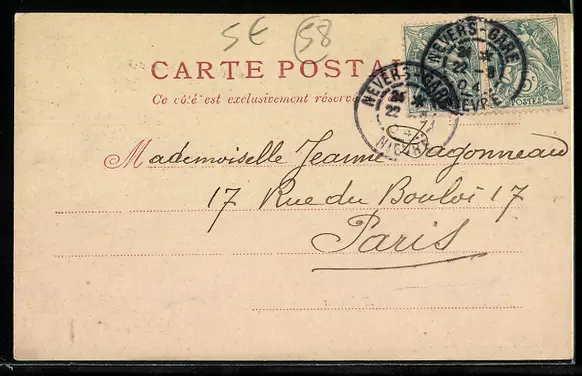 5€ 58
CARTE POSTAL
Ce côté est exclusivement réserv
NEVERS-GARE
24
22 -8
04
NIÈVRE
NEVERS-GARE
24
22
NIÈVRE
5c
POSTES
Mademoiselle Jeanne Dagonneaud
17 Rue du Bouloi 17
Paris